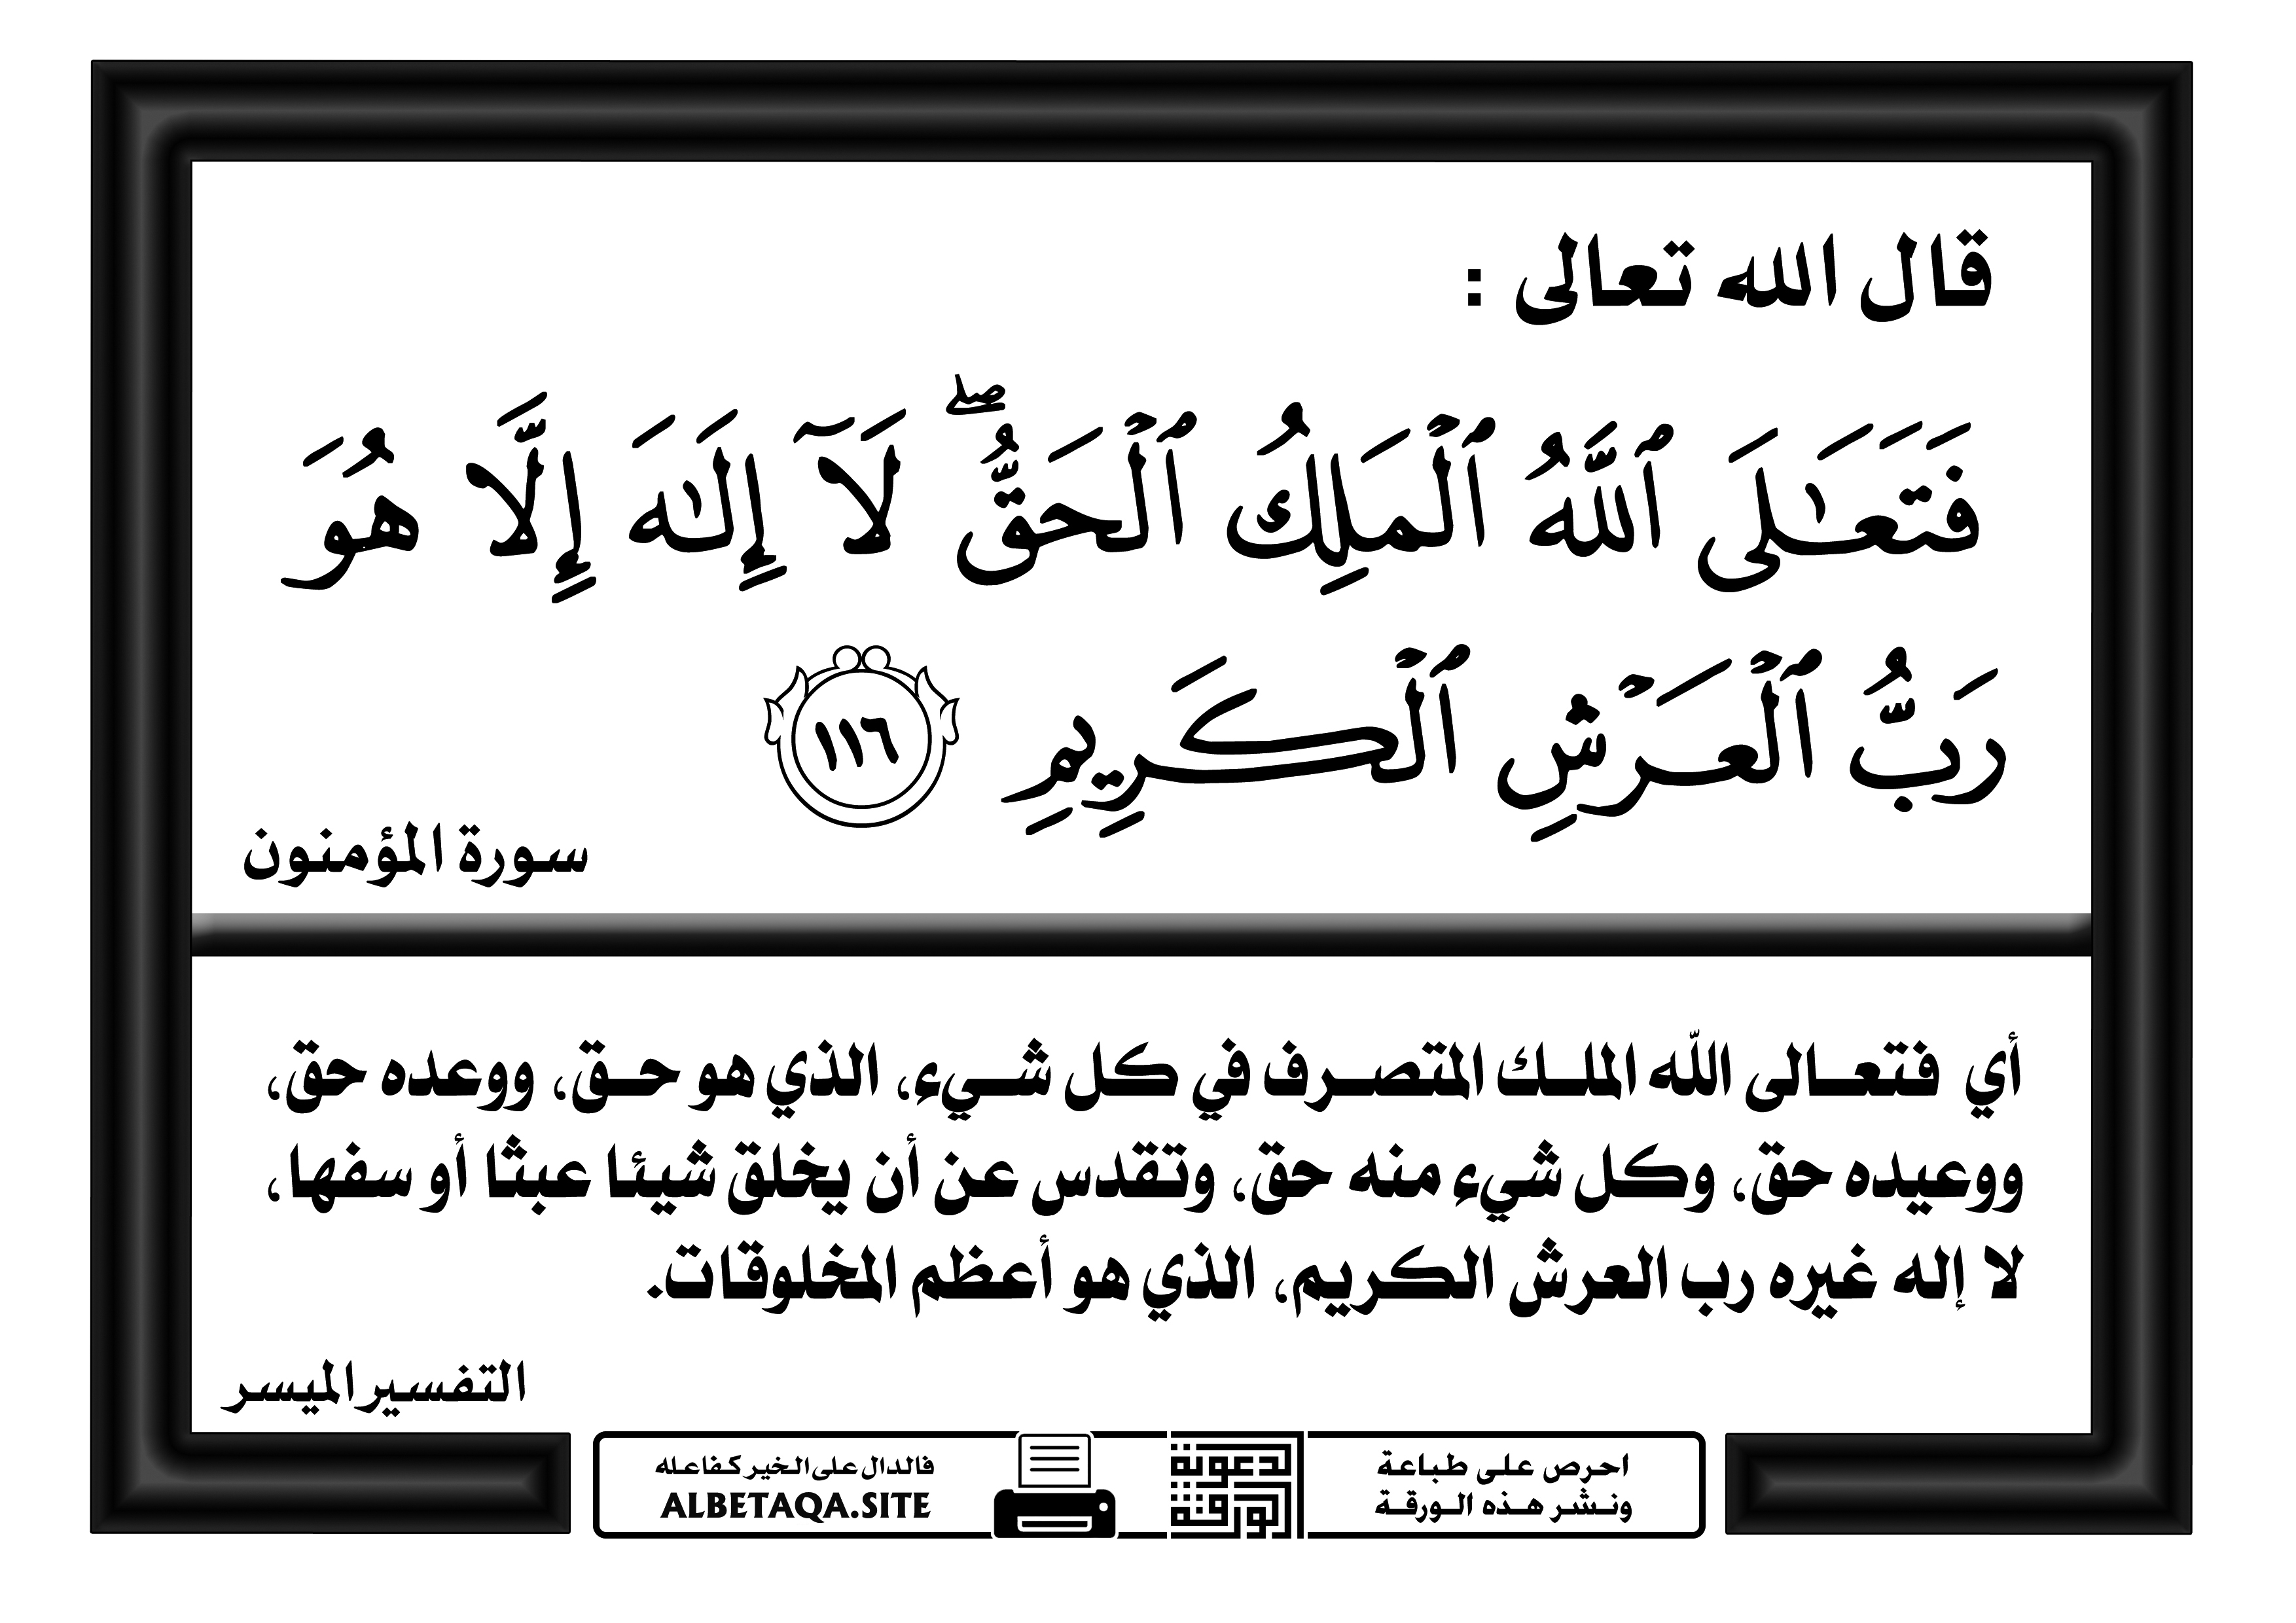 قال الله تعالى :
فَتَعَـٰلَى ٱللَّهُ ٱلْمَلِكُ ٱلْحَقُّ ۖ لَآ إِلَـٰهَ إِلَّا هُوَ
رَبُّ ٱلْعَرْشِ ٱلْكَرِيمِ ١١٦
سورة المؤمنون
أي فتعالى الله الملك المتصرف في كل شيء، الذي هو حق، ووعده حق،
ووعيده حق، وكل شيء منه حق، وتقدس عن أن يخلق شيئا عبثا أو سفها،
لا إله غيره رب العرش الكريم، الذي هو أعظم المخلوقات.
التفسير الميسر
احرص على طباعة
ونشر هذه الورقة
الورقة
الدعوية
فالدال على الخير كفاعله
ALBETAQA.SITE